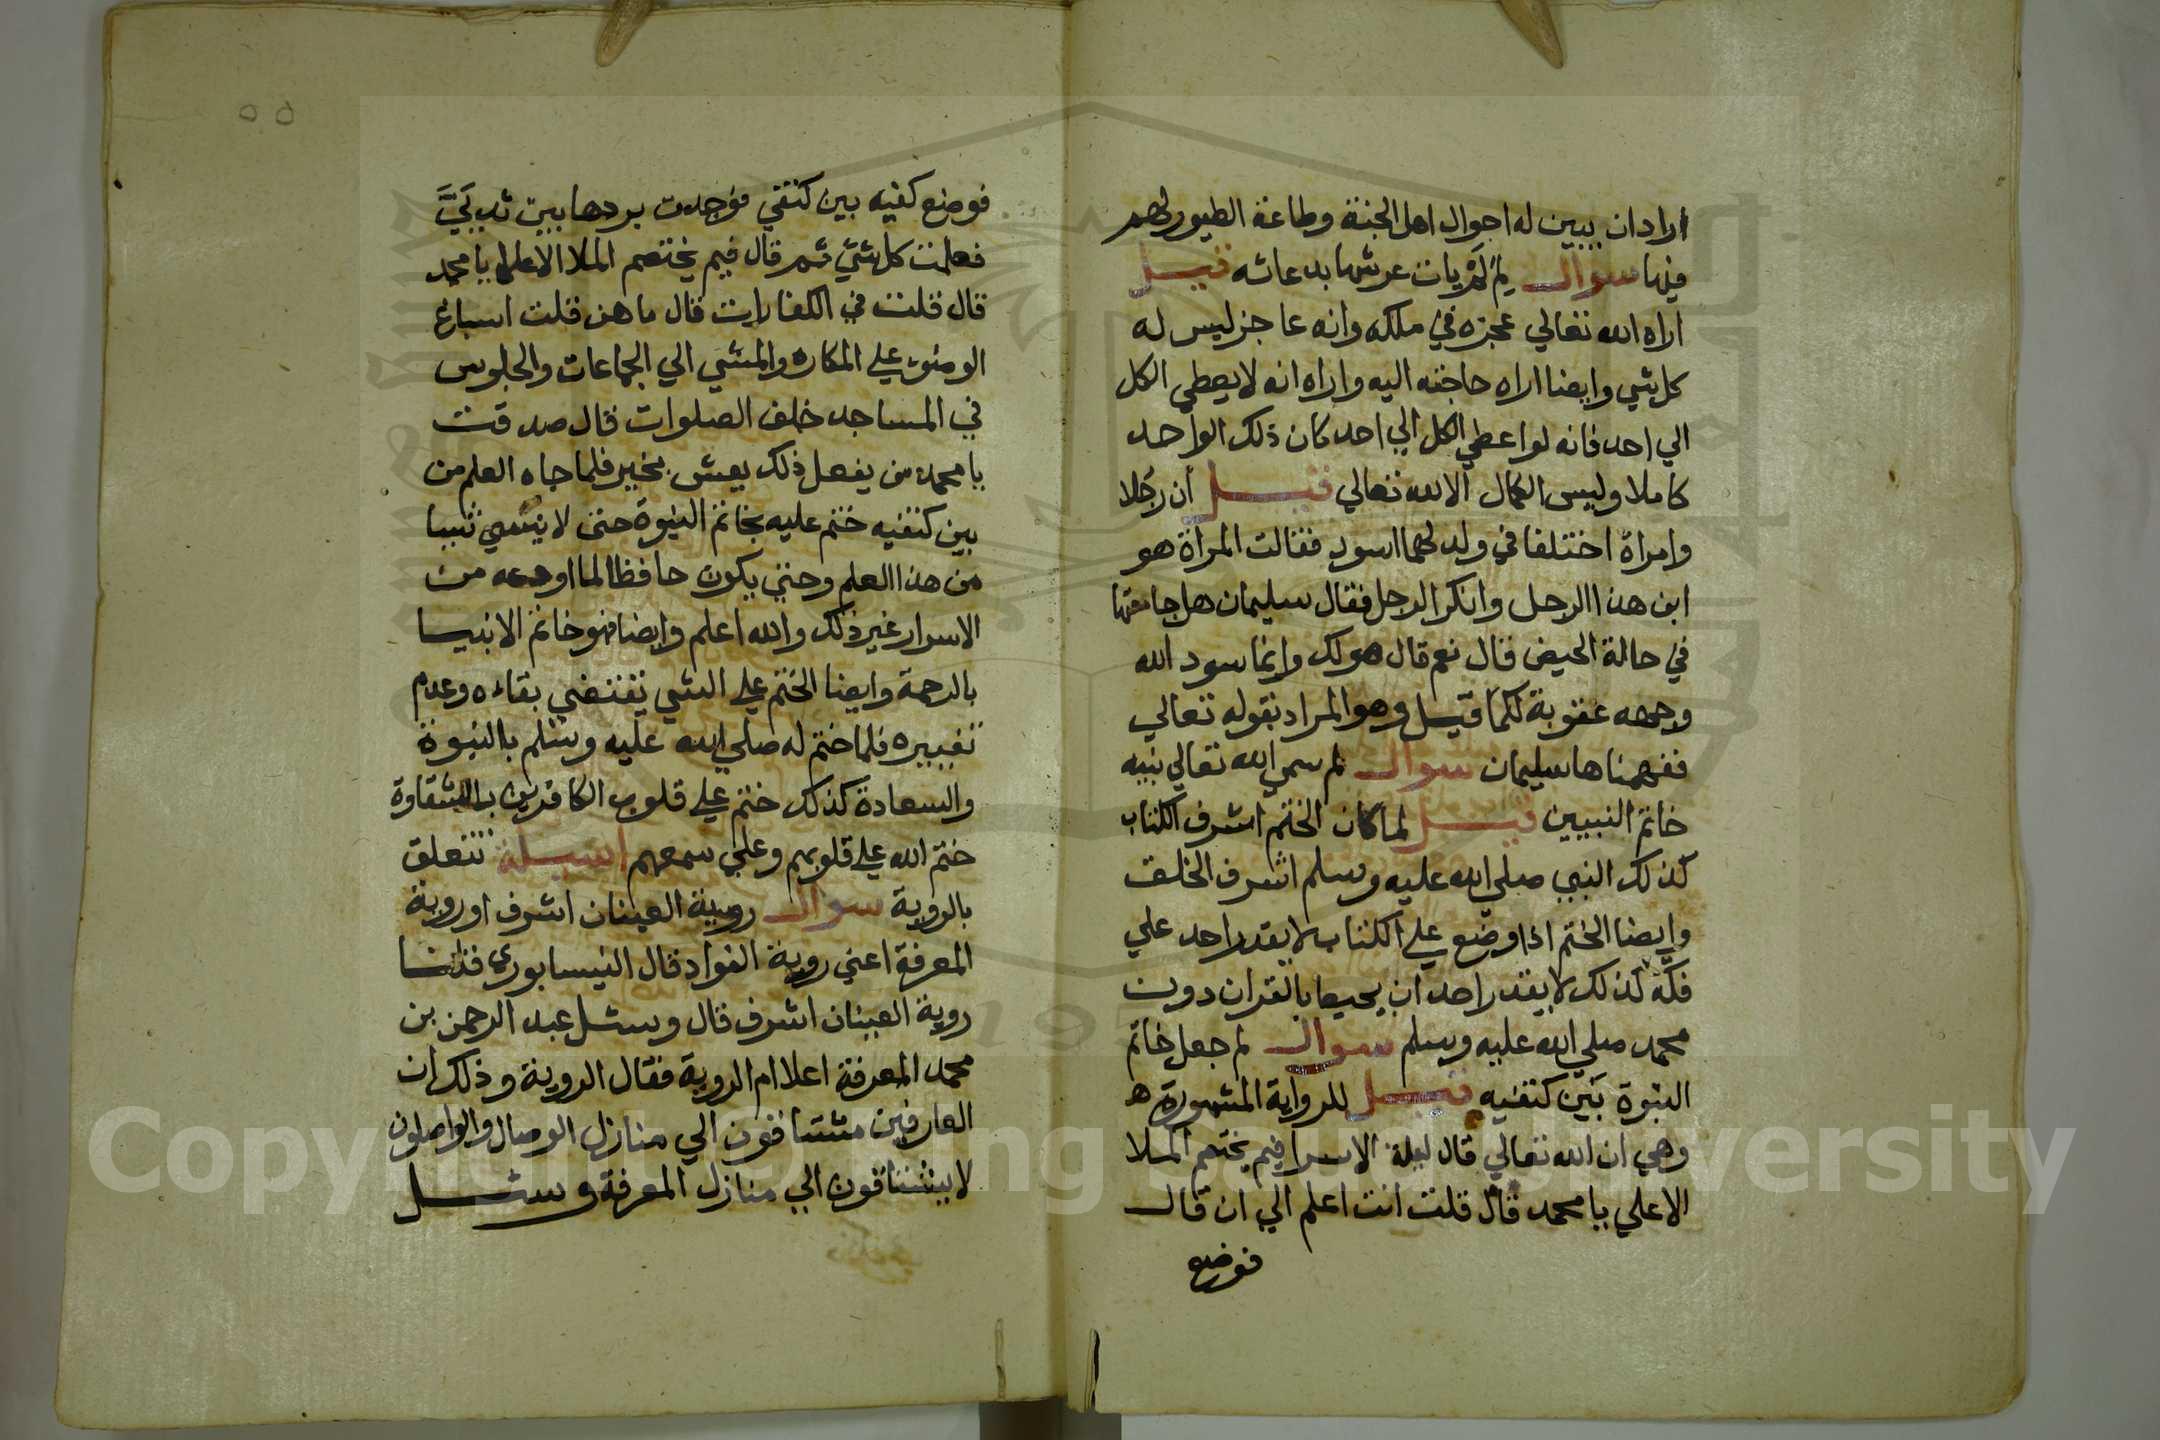 اراد ان يبين له احوال اهل الجنة وطاعة الطيور لهم
فيها سوال لم لم يات عرشها بدعائه قيل
اراه الله تعالي عجزه في ملكه وانه عاجز ليس له
كل شي وايضا اراه حاجته اليه واراه انه لا يعطي الكل
الي احد فانه لو اعطي الكل الي احد كان ذلك الواحد
كاملا وليس الكمال الا لله تعالي قيل ان رجلا
وامراة اختلفا في ولد لهما اسود فقالت المراة هو
ابن هذا الرجل وانكر الرجل فقال سليمان هل جامعتها
في حالة الحيض قال نعم قال هو لك وانما سود الله
وجهه عقوبة لكما قيل وهو المراد بقوله تعالي
ففهمناها سليمان سوال لم سمي الله تعالي نبيه
خاتم النبيين قيل لما كان الختم اشرف الكتاب
كذلك النبي صلي الله عليه وسلم اشرف الخلق
وايضا الختم اذا وضع علي الكتاب لا يقدر احد علي
فكه كذلك لا يقدر احد ان يحيط بالقران دون
محمد صلي الله عليه وسلم سوال لم جعل خاتم
النبوة بين كتفيه قيل للرواية المشهورة
وهي ان الله تعالي قال ليلة الاسرا فيم يختصم الملا
الاعلي يا محمد قال قلت انت اعلم الي ان قال
فوضع
٥٥
فوضع كفيه بين كتفي فوجدت بردها بين ثدييَّ
فعلمت كل شي ثم قال فيم يختصم الملا الاعلي يا محمد
قال قلت في الكفارات قال ما هن قلت اسباغ
الوضوء علي المكاره والمشي الي الجماعات والجلوس
في المساجد خلف الصلوات قال صدقت
يا محمد من يفعل ذلك يعش بخير فلما جاه العلم من
بين كتفيه ختم عليه بخاتم النبوة حتي لا ينسي شيا
من هذا العلم وحتي يكون حافظا لما اودعه من
الاسرار غير ذلك والله اعلم وايضا فهو خاتم الانبيا
بالرحمة وايضا الختم علي الشي يقتضي بقاءه وعدم
تغييره فلما ختم له صلي الله عليه وسلم بالنبوة
والسعادة كذلك ختم علي قلوب الكافرين بالشقاوة
ختم الله علي قلوبهم وعلي سمعهم اسيلة تتعلق
بالروية سوال روية العينان اشرف او روية
المعرفة اعني روية الفواد قال النيسابوري قلنا
روية العينان اشرف قال وسئل عبد الرحمن بن
محمد المعرفة اعلا ام الروية فقال الروية وذلك ان
العارفين مشتاقون الي منازل الوصال والواصلون
لا يشتاقون الي منازل المعرفة وسئل
Copyright © King Saud University